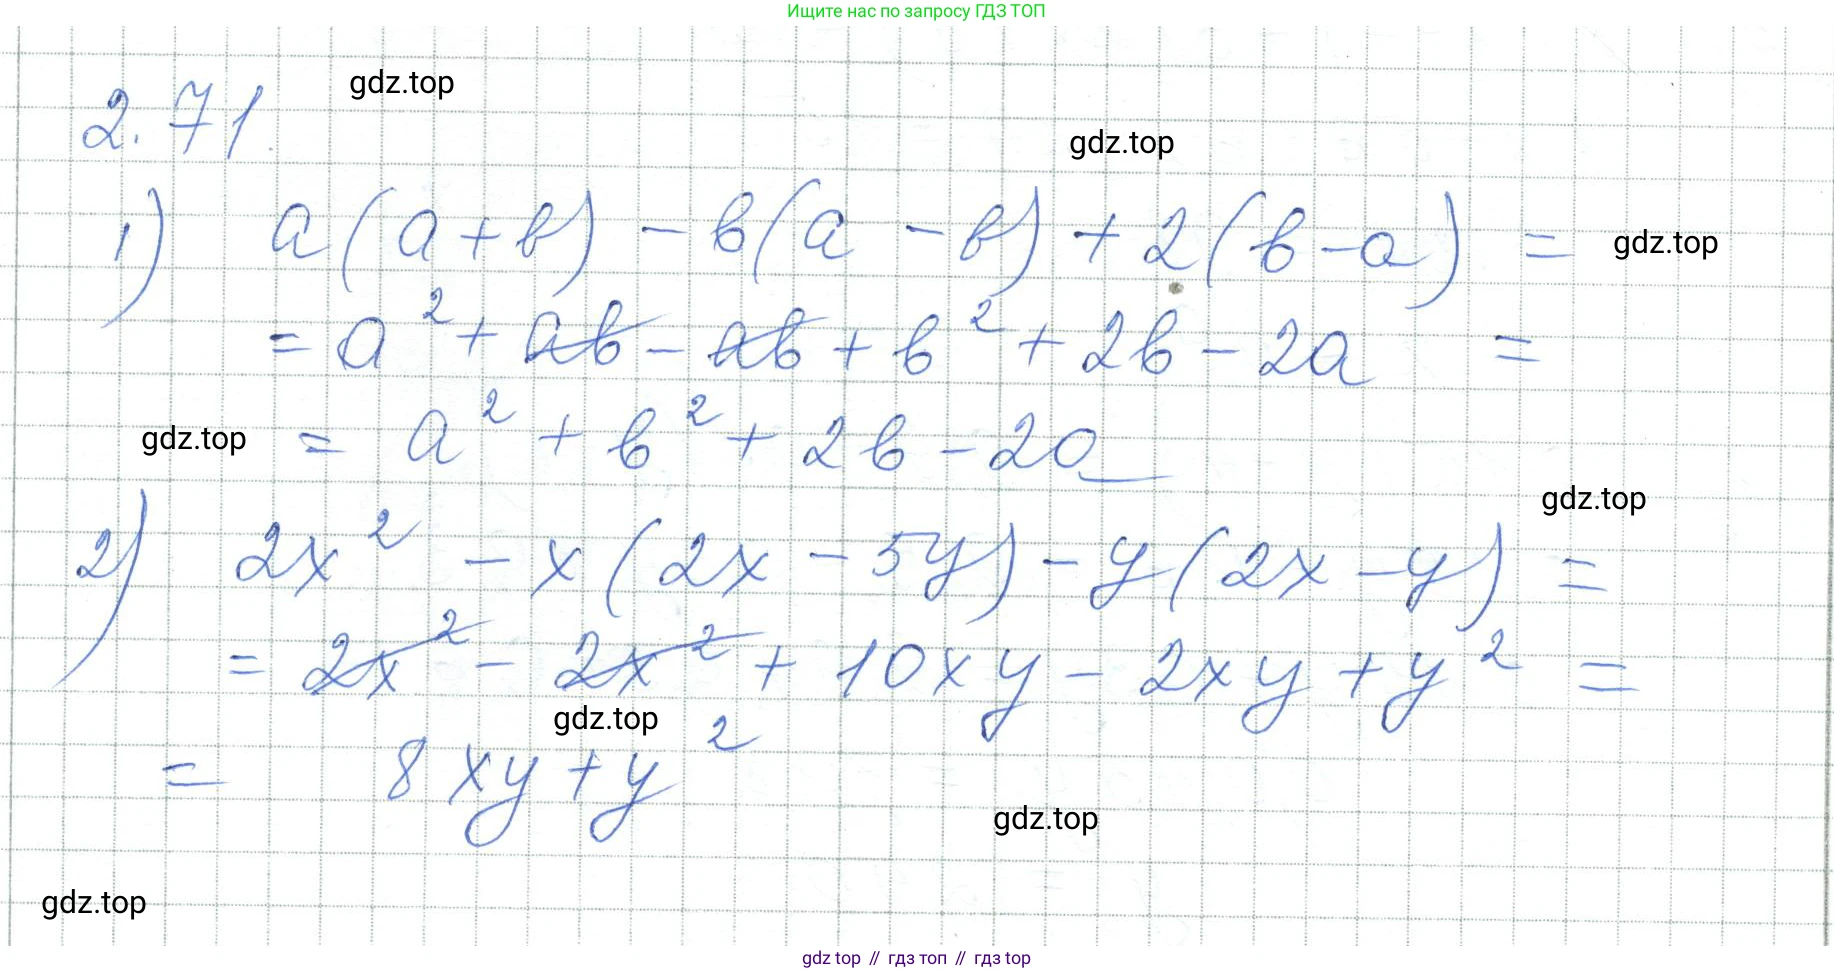 Ищите нас по запросу ГДЗ ТОП
gdz.top
2.71.
gdz.top
1) a(a+b) - b(a-b) + 2(b-a) =
gdz.top
= a² + ab - ab + b² + 2b - 2a =
gdz.top
= a² + b² + 2b - 2a
gdz.top
2) 2x² - x(2x - 5y) - y(2x - y) =
= 2x² - 2x² + 10xy - 2xy + y² =
gdz.top
= 8xy + y²
gdz.top
gdz.top
gdz top // гдз топ // гдз top